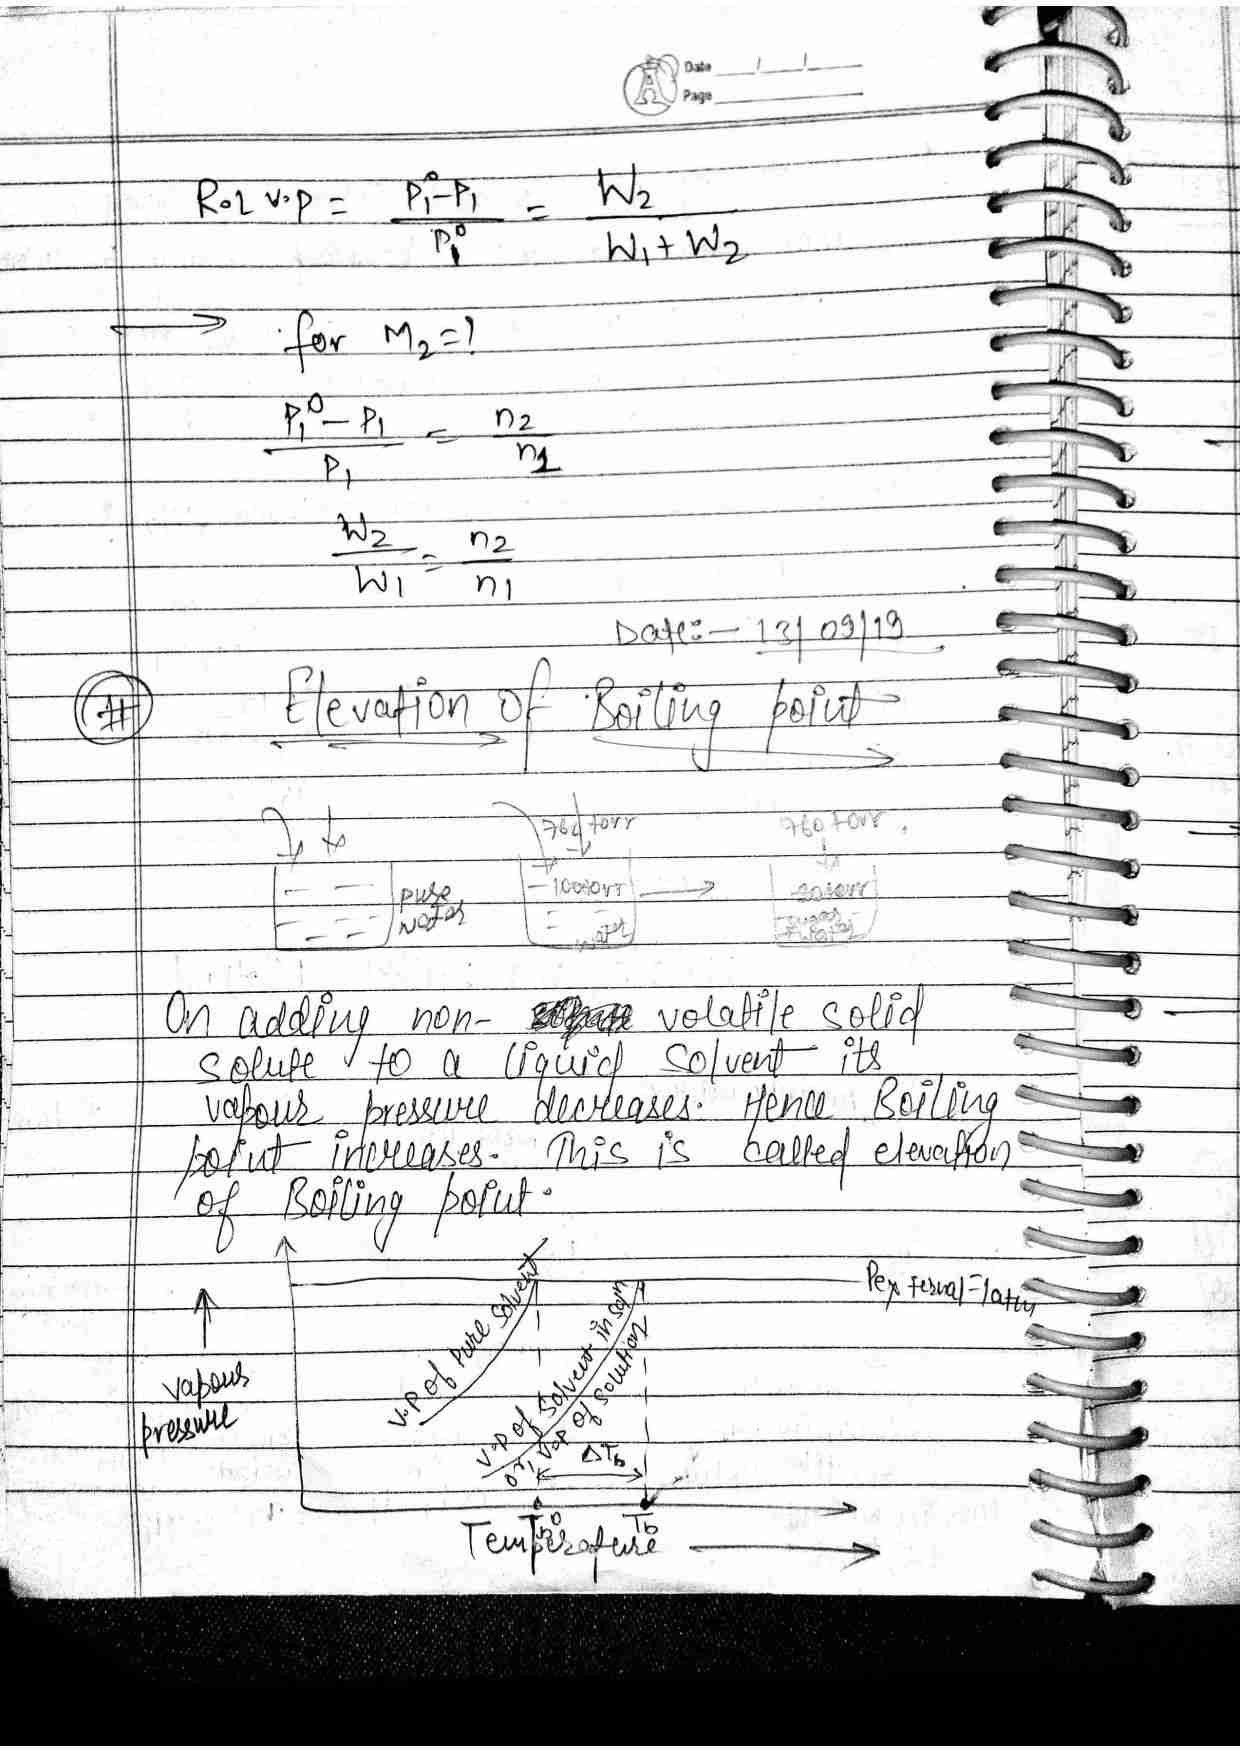 Date
Page
R.o.l v.p = P₁⁰-P₁ / P₁⁰ = W₂ / W₁ + W₂
→ for M₂ = ?
P₁⁰ - P₁ / P₁ = n₂ / n₁
W₂ / W₁ = n₂ / n₁
Date:- 13/09/19
# Elevation of Boiling point
760 torr
760 torr.
pure
water
100torr
water
On adding non- volatile solid
solute to a liquid solvent its
vapour pressure decreases. Hence Boiling
point increases. This is called elevation
of Boiling point.
Pexternal = 1atm
v.p of Pure Solvent
v.p of Solvent in solⁿ
or, v.p of solution
vapour
pressure
ΔTb
Tb⁰
Tb
Temperature